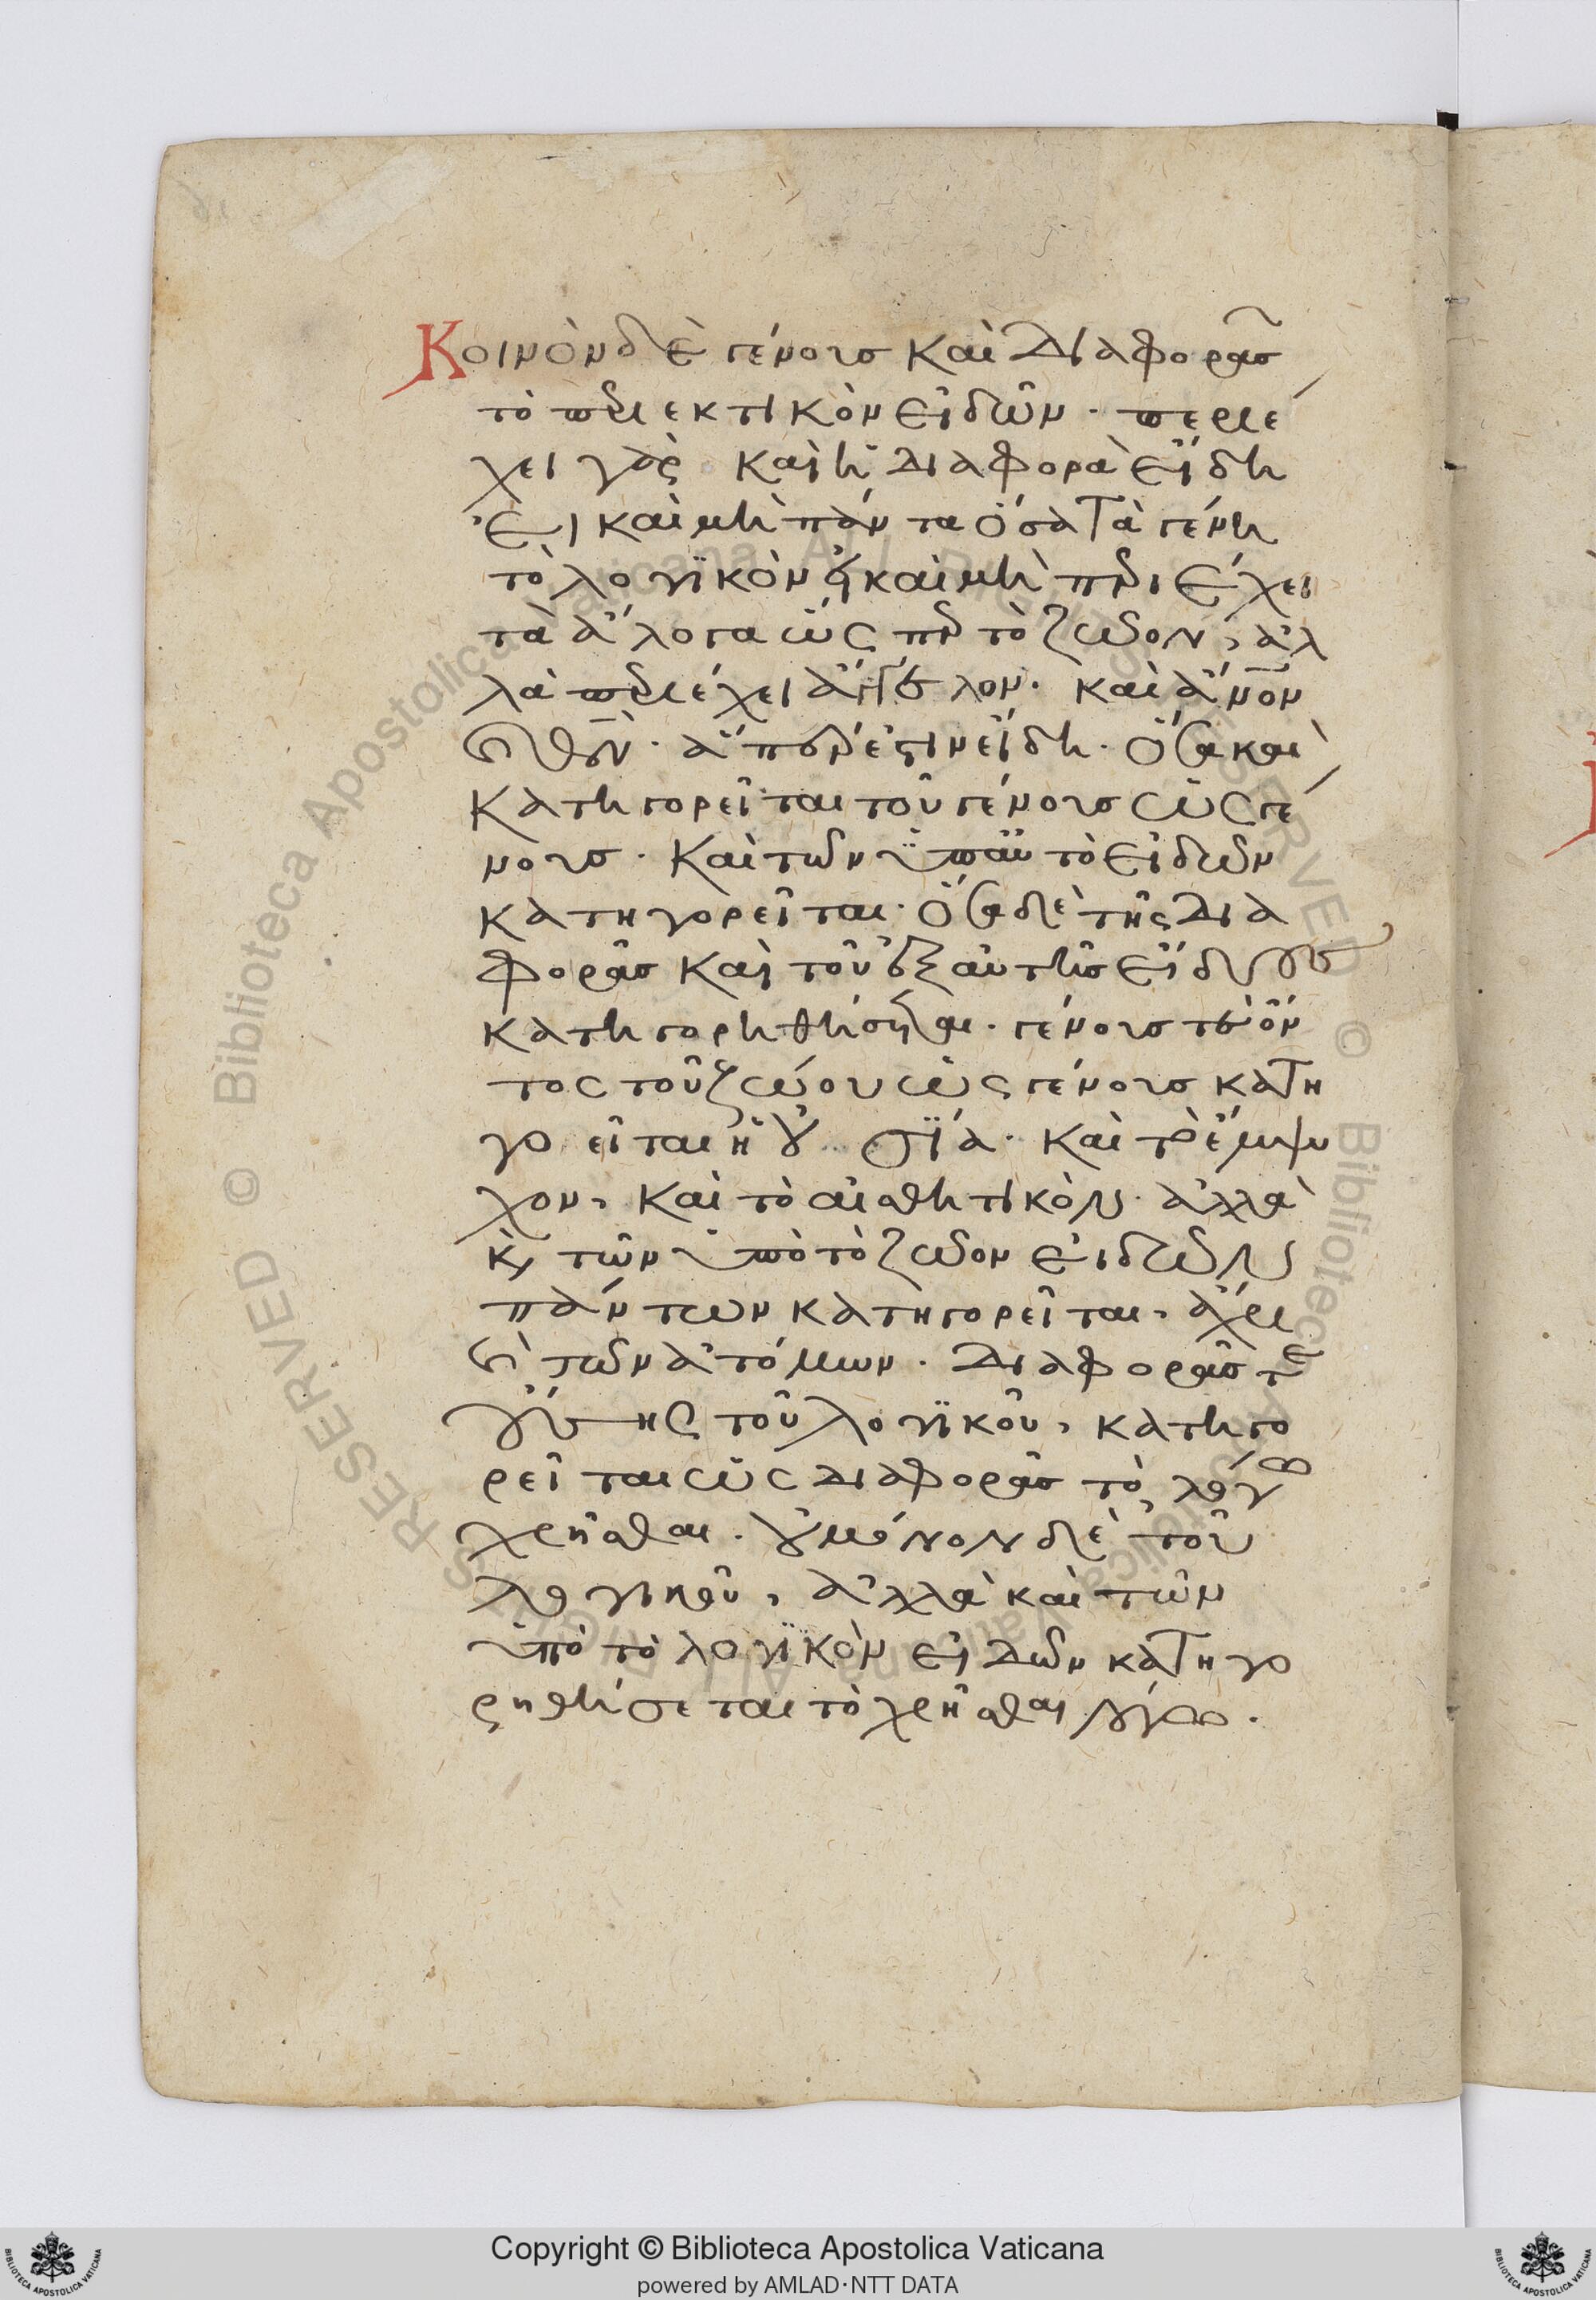 Κοινὸν δὲ γένους καὶ διαφορᾶς
τὸ περιεκτικὸν εἰδῶν· περιέ
χει γὰρ καὶ ἡ διαφορὰ εἴδη
εἰ καὶ μὴ πάντα ὅσα τὰ γένη
τὸ λογικὸν εἰ καὶ μὴ περιέχει
τὰ ἄλογα ὥσπερ τὸ ζῶον, ἀλ
λὰ περιέχει ἄγγελον· καὶ ἄνον
καὶ θν· ἅπερ ἐστιν εἴδη· ὅσα καὶ
κατηγορεῖται τοῦ γένους ὡς γέ
νους· καὶ τῶν ὑπ αὐτὸ εἰδῶν
κατηγορεῖται· ὅσα δὲ τῆς δια
φορᾶς καὶ τοῦ ἐξ αὐτῆς εἴδους
κατηγορηθήσεται· γένους τε ὄν
τος τοῦ ζώου ὡς γένους κατη
γο εῖται ἡ οὐσία· καὶ τὸ ἔμψυ
χον, καὶ τὸ αἰσθητικόν· ἀλλὰ
κ τῶν ὑπὸ τὸ ζῶον εἰδῶν
πάντων κατηγορεῖται, ἄχρι
καὶ τῶν ἀτόμων· διαφορᾶς τε
οὔσης τοῦ λογικοῦ, κατηγο
ρεῖται ὡς διαφορᾶς τὸ λόγω
χρῆσθαι· οὐ μόνον δὲ τοῦ
λογικοῦ, ἀλλὰ καὶ τῶν
ὑπὸ τὸ λογικὸν εἰδῶν κατηγο
ρηθήσεται τὸ χρῆσθαι λόγω.
Copyright © Biblioteca Apostolica Vaticana
powered by AMLAD·NTT DATA